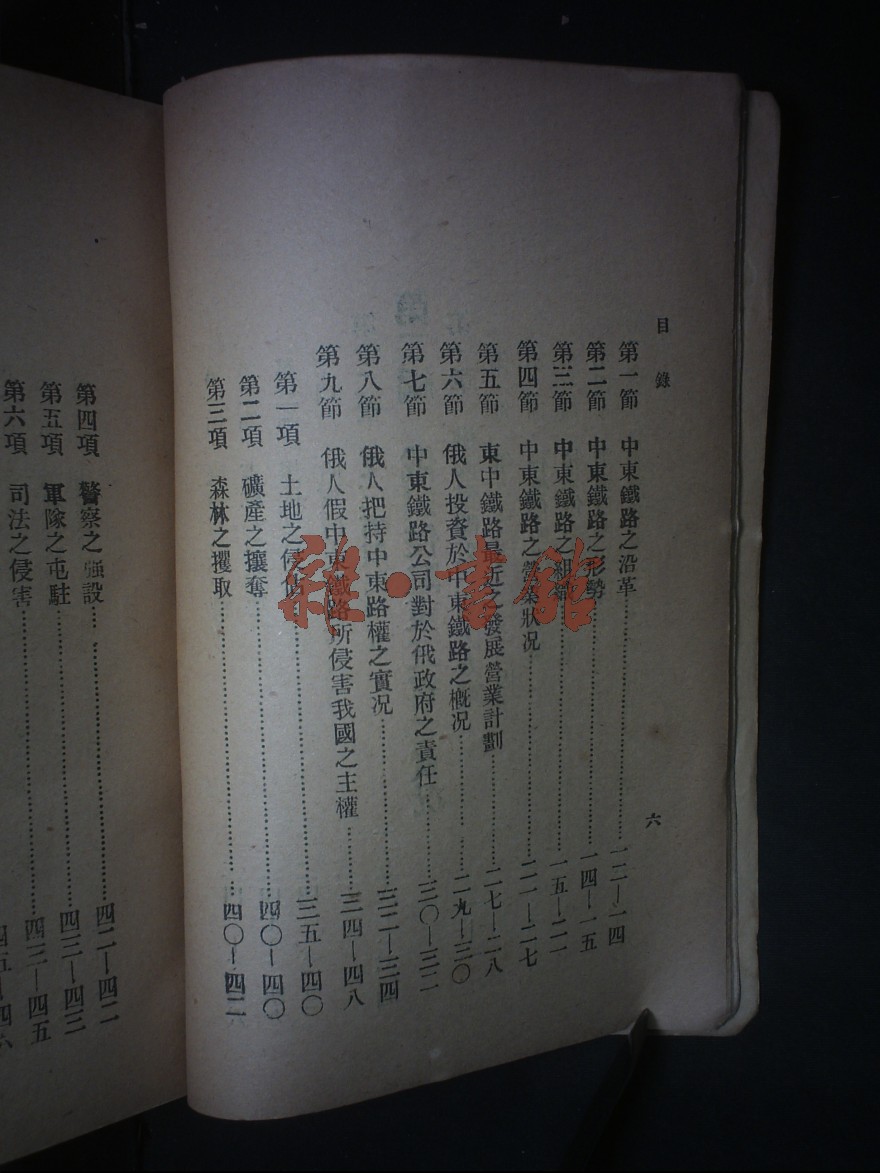 目錄
六
第一節 中東鐵路之沿革……一二—一四
第二節 中東鐵路之形勢……一四—一五
第三節 中東鐵路之組織……一五—二一
第四節 中東鐵路之營業狀况……二一—二七
第五節 東中鐵路最近之發展營業計劃……二七—二八
第六節 俄人投資於中東鐵路之概况……二九—三〇
第七節 中東鐵路公司對於俄政府之責任……三〇—三二
第八節 俄人把持中東路權之實况……三二—三四
第九節 俄人假中東鐵路所侵害我國之主權……三四—四八
第一項 土地之侵佔……三五—四〇
第二項 礦產之攘奪……四〇—四〇
第三項 森林之攫取……四〇—四二
第四項 警察之强設……四二—四二
第五項 軍隊之屯駐……四三—四三
第六項 司法之侵害……四三—四五
四五—四六
雜·書館